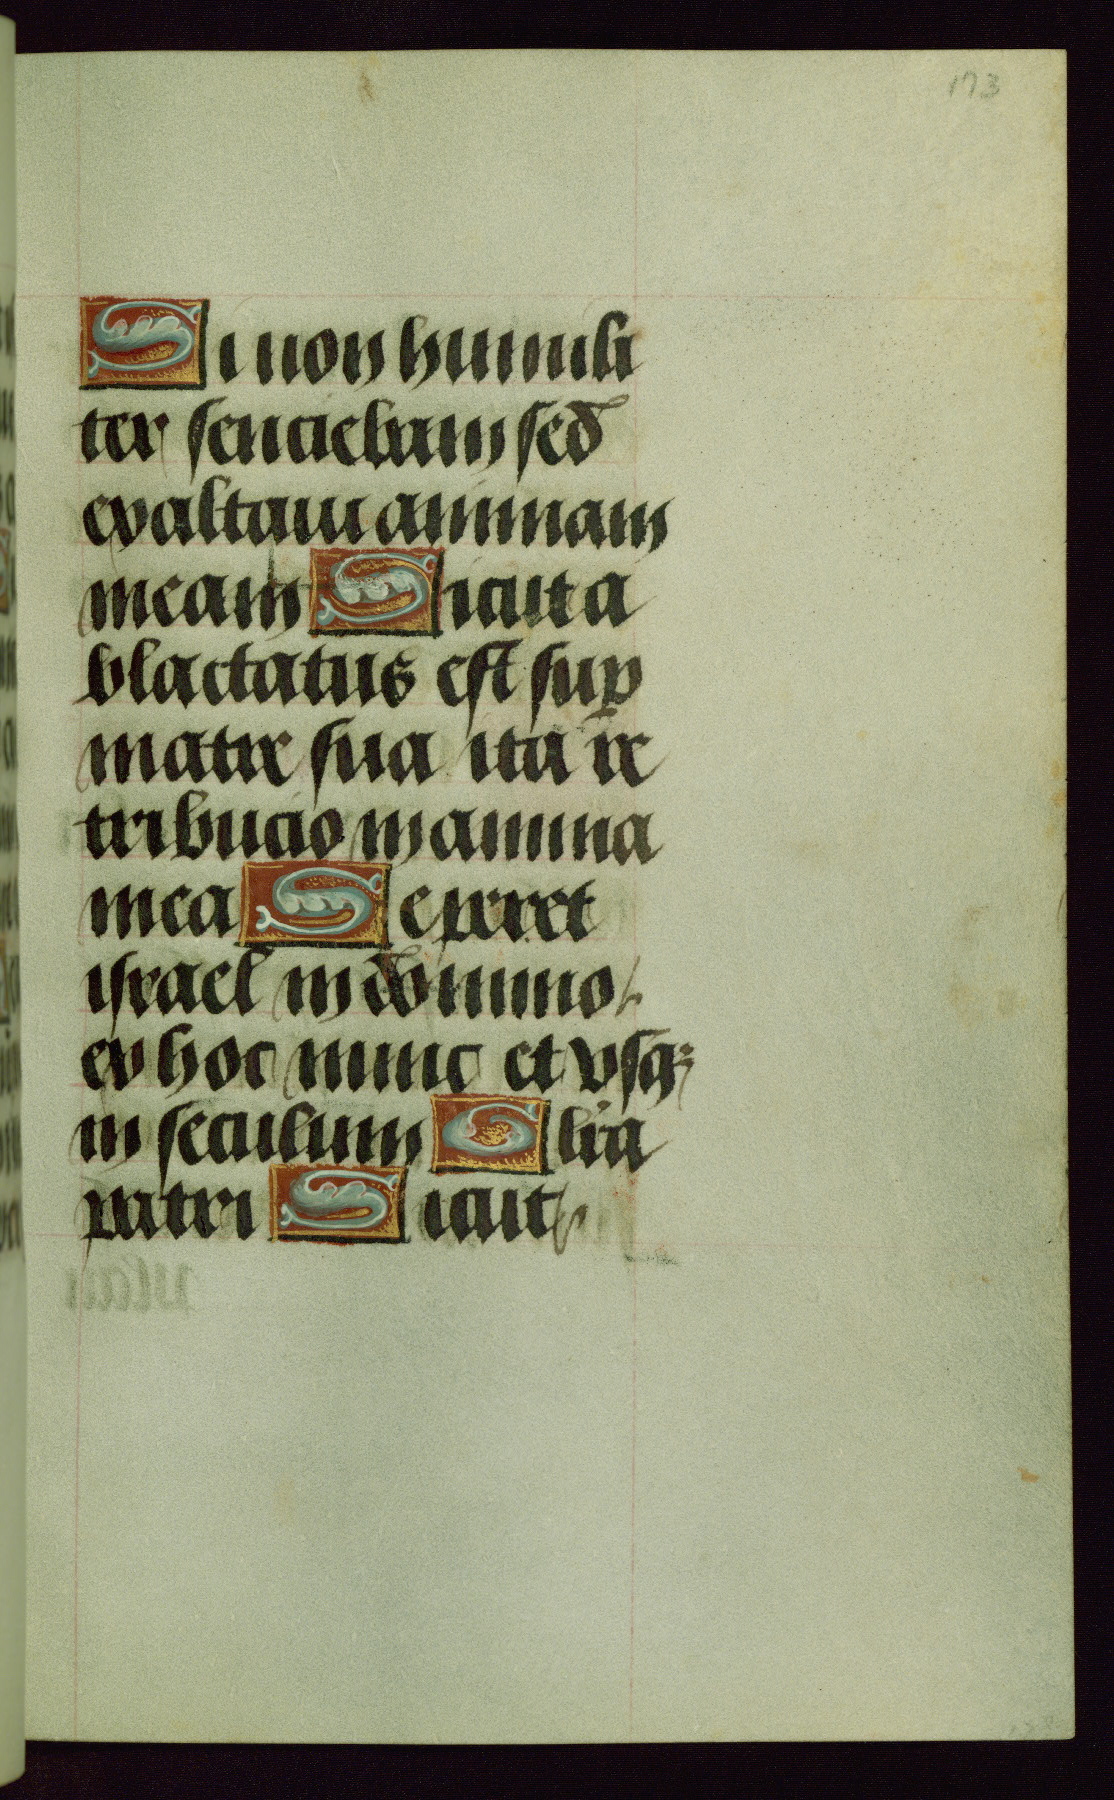 173
Si non humili
ter senciebam sed
exaltaui animam
meam Sicut a
blactatus est sup̲
matre sua ita re
tribucio in anima
mea Speret
israel in domino
ex hoc nunc et vsq;
in seculum Gl̄ia
patri Sicut